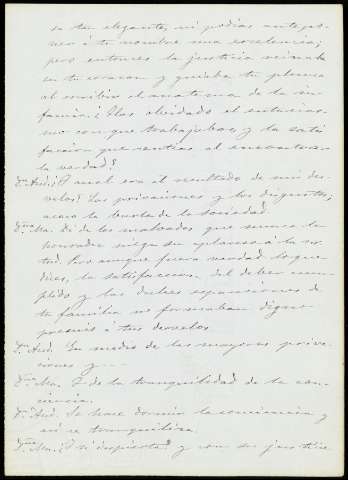 tu elegante, ni podias antepo-
ner á tu nombre una excelencia;
pero entonces la justicia reinaba
en tu corazon y guiaba tu pluma
al escribir el anatema de la in-
famia. ¿Has olvidado el entusias-
mo con que trabajabas, y la satis-
faccion que sentias al encontrar
la verdad?
Dn. And. ¿Y cual era el resultado de mis des-
velos? Las privaciones y los disgustos,
acaso la burla de la sociedad.
Dña. Ma. Di de los malvados que nunca la
honradez niega su aplauso á la vir-
tud. Pero aunque fuera verdad lo que
dices, la satisfaccion del deber cum-
plido y las dulces espansiones de
tu familia no formaban digno
premio á tus desvelos.
Dn. And. En medio de las mayores priva-
ciones y....
Dña. Ma. Y de la tranquilidad de la con-
ciencia.
Dn. And. Se hace dormir la conciencia y
asi se tranquiliza.
Dña. Ma. ¿Y si despierta? y con su justicia